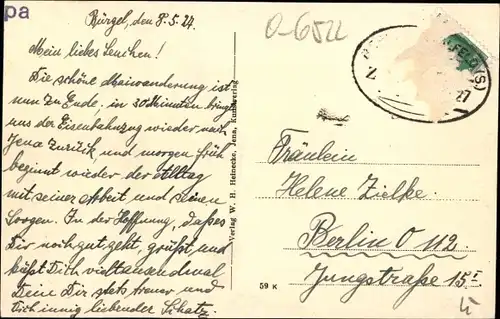 pa
Bürgel, den 8.5.24.
Mein liebes Lenchen!
Die schöne Maiwanderung ist
nun zu Ende, in 30 Minuten bringt
uns der Eisenbahnzug wieder nach
Jena zurück und morgen früh
beginnt wieder der Alltag
mit seiner Arbeit und seinen
Sorgen. In der Hoffnung, daß es
Dir noch gut geht, grüßt und
küßt Dich vieltausendmal
Deine Dir stets treuer und
Dich innig liebender Schatz.
Verlag W. H. Heinecke, Jena, Kunstverlag
0-6522
(S)
Z.
27
Fräulein
Helene Zielke.
Berlin O 112
Jungstraße 15 I
59 K